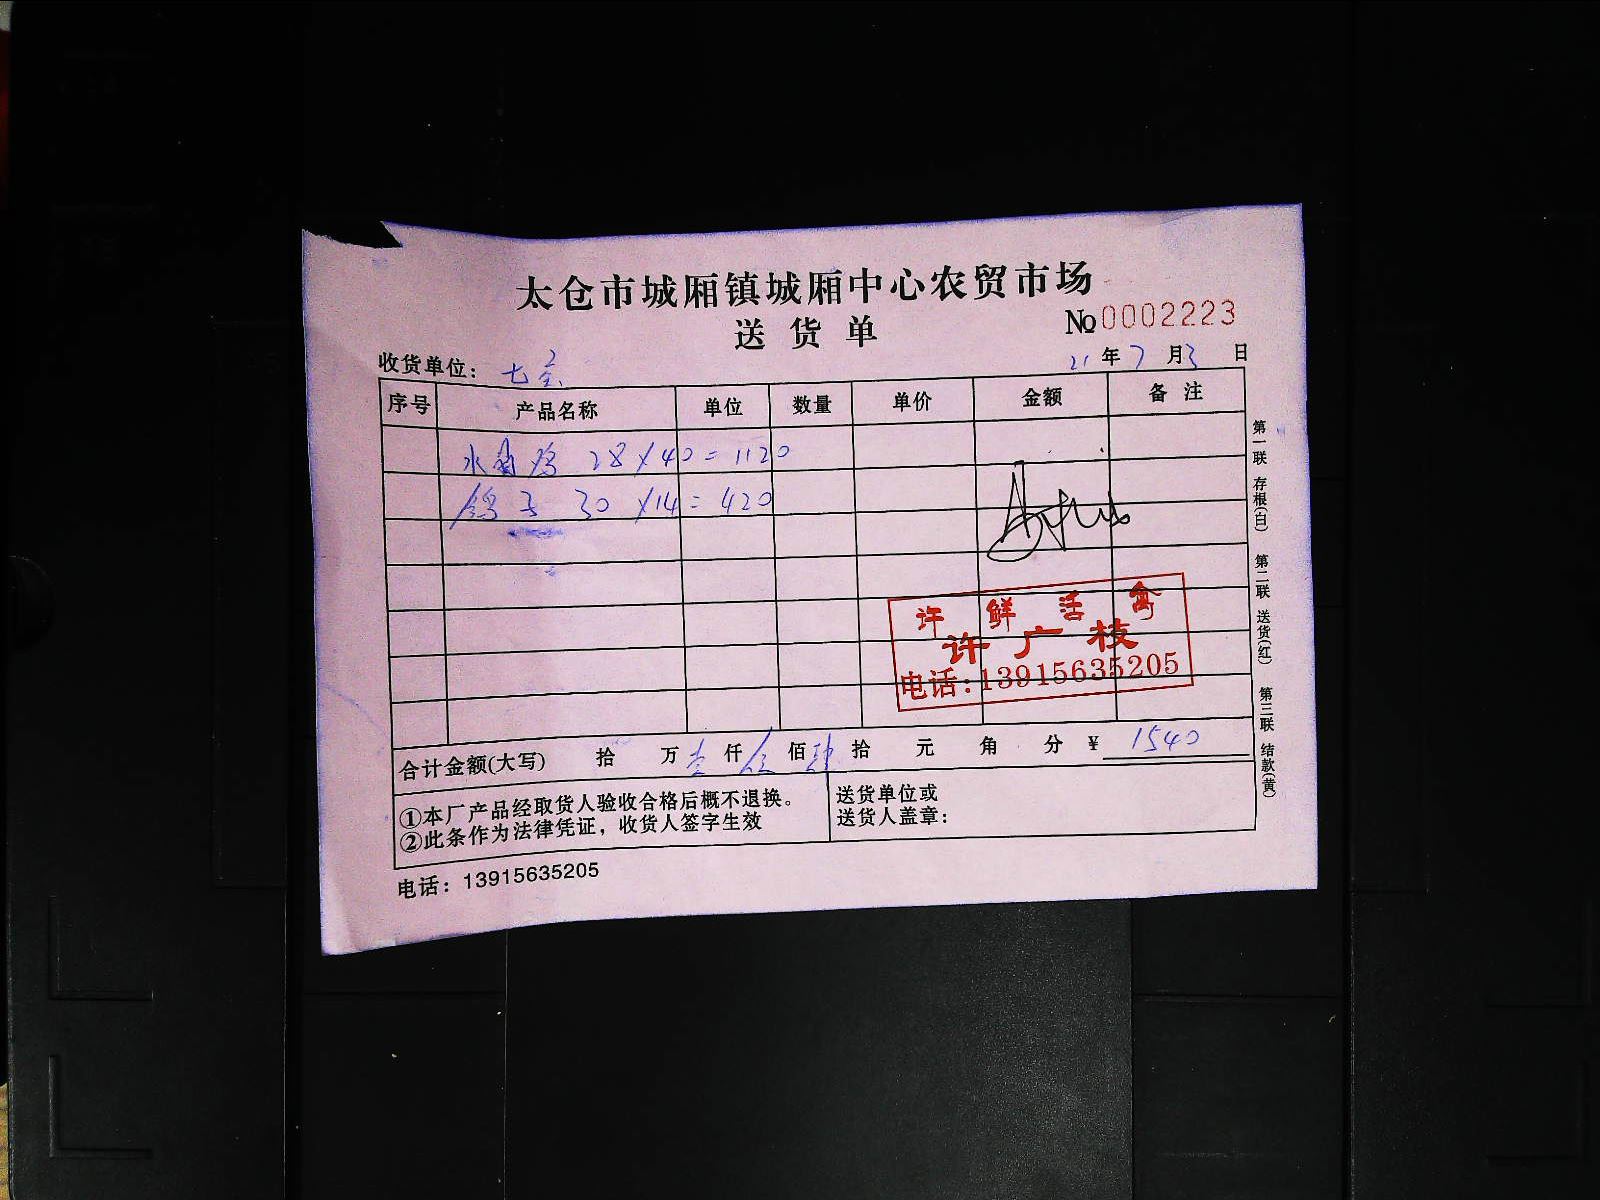 太仓市城厢镇城厢中心农贸市场
送货单
№0002223
收货单位：七
21年7月3日
序号 产品名称 单位 数量 单价 金额 备注
水 鸡 28×40=1120
鸽子 30×14=420
许鲜活禽
许广枝
电话:13915635205
合计金额(大写) 拾 万壹仟 佰肆拾 元 角 分 ¥1540
①本厂产品经取货人验收合格后概不退换。
②此条作为法律凭证，收货人签字生效
送货单位或
送货人盖章：
电话：13915635205
第一联 存根(白) 第二联 送货(红) 第三联 结款(黄)